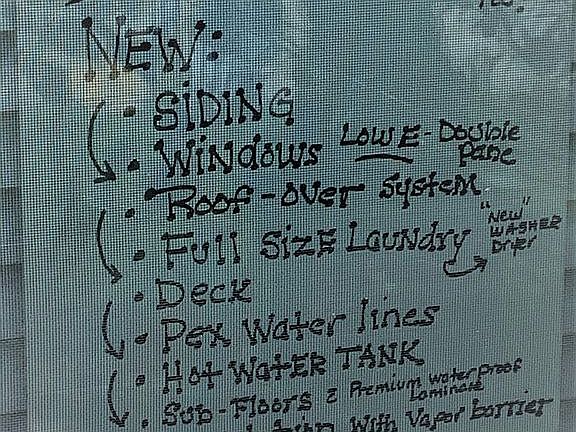 NEW:
• SIDING
• Windows LOW E - Double Pane
• Roof-over System
• Full Size Laundry "New" WASHER Drier
• Deck
• Pex Water lines
• Hot WATER TANK
• Sub-Floors & Premium waterproof Laminate
With Vapor barrier